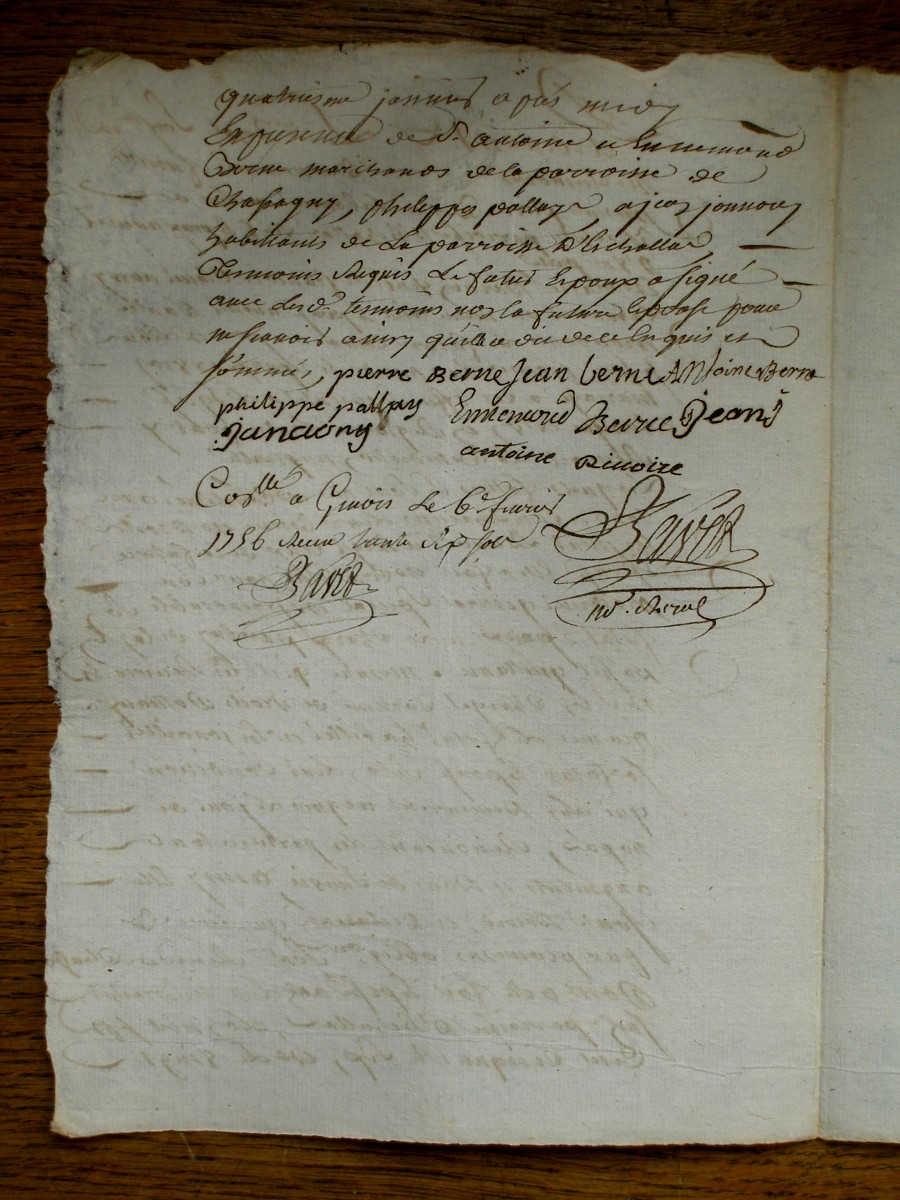 quatriesme janvier apres midy
En presence de Sr. antoine et Ennemond
Berne marchands de la parroisse de
Chassagny, philippe pallay, a jean jannony
habittants de La parroisse D'Echallas
Temoins Requis Le futur Epoux a signé
avec Lesd. temoins non la future Epouse pour
ne scavoir a ainsy quelle a dit de ce Enquis et
sommés, pierre Berne Jean berne ANtoine Berne
philippe pallay Ennemond Berne Jean J
Janaony antoine Rivoire
Conllé a Givors Le 6e fevrier
1756 Receu trente six sols
Bavet
Bavet
nore. Royal